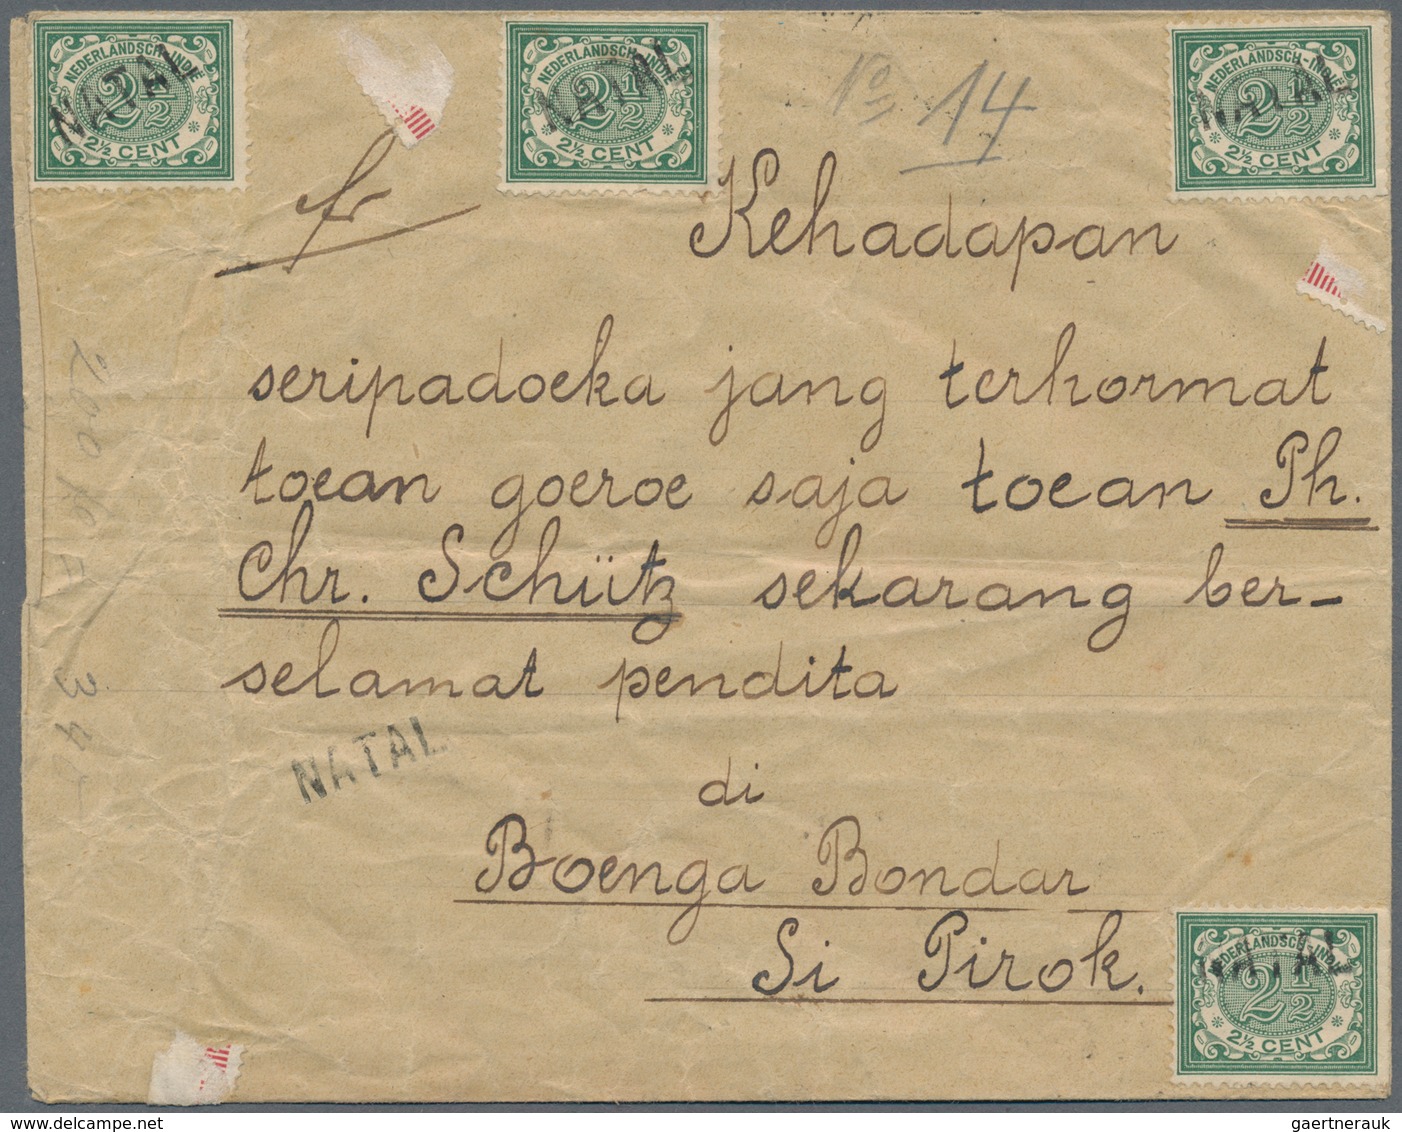 NEDERLANDSCH-INDIË
2½
2½ CENT
NATAL
NEDERLANDSCH-INDIË
2½
2½ CENT
NATAL
No 14
NEDERLANDSCH-INDIË
2½
2½ CENT
NATAL
fr
Kehadapan
seripadoeka jang terhormat
toean goeroe saja toean Ph.
Chr. Schütz sekarang ber-
selamat pendita
NATAL
di
Boenga Bondar
Si Pirok.
NEDERLANDSCH-INDIË
2½
2½ CENT
NATAL
www.delcampe.net
gaertnerauk